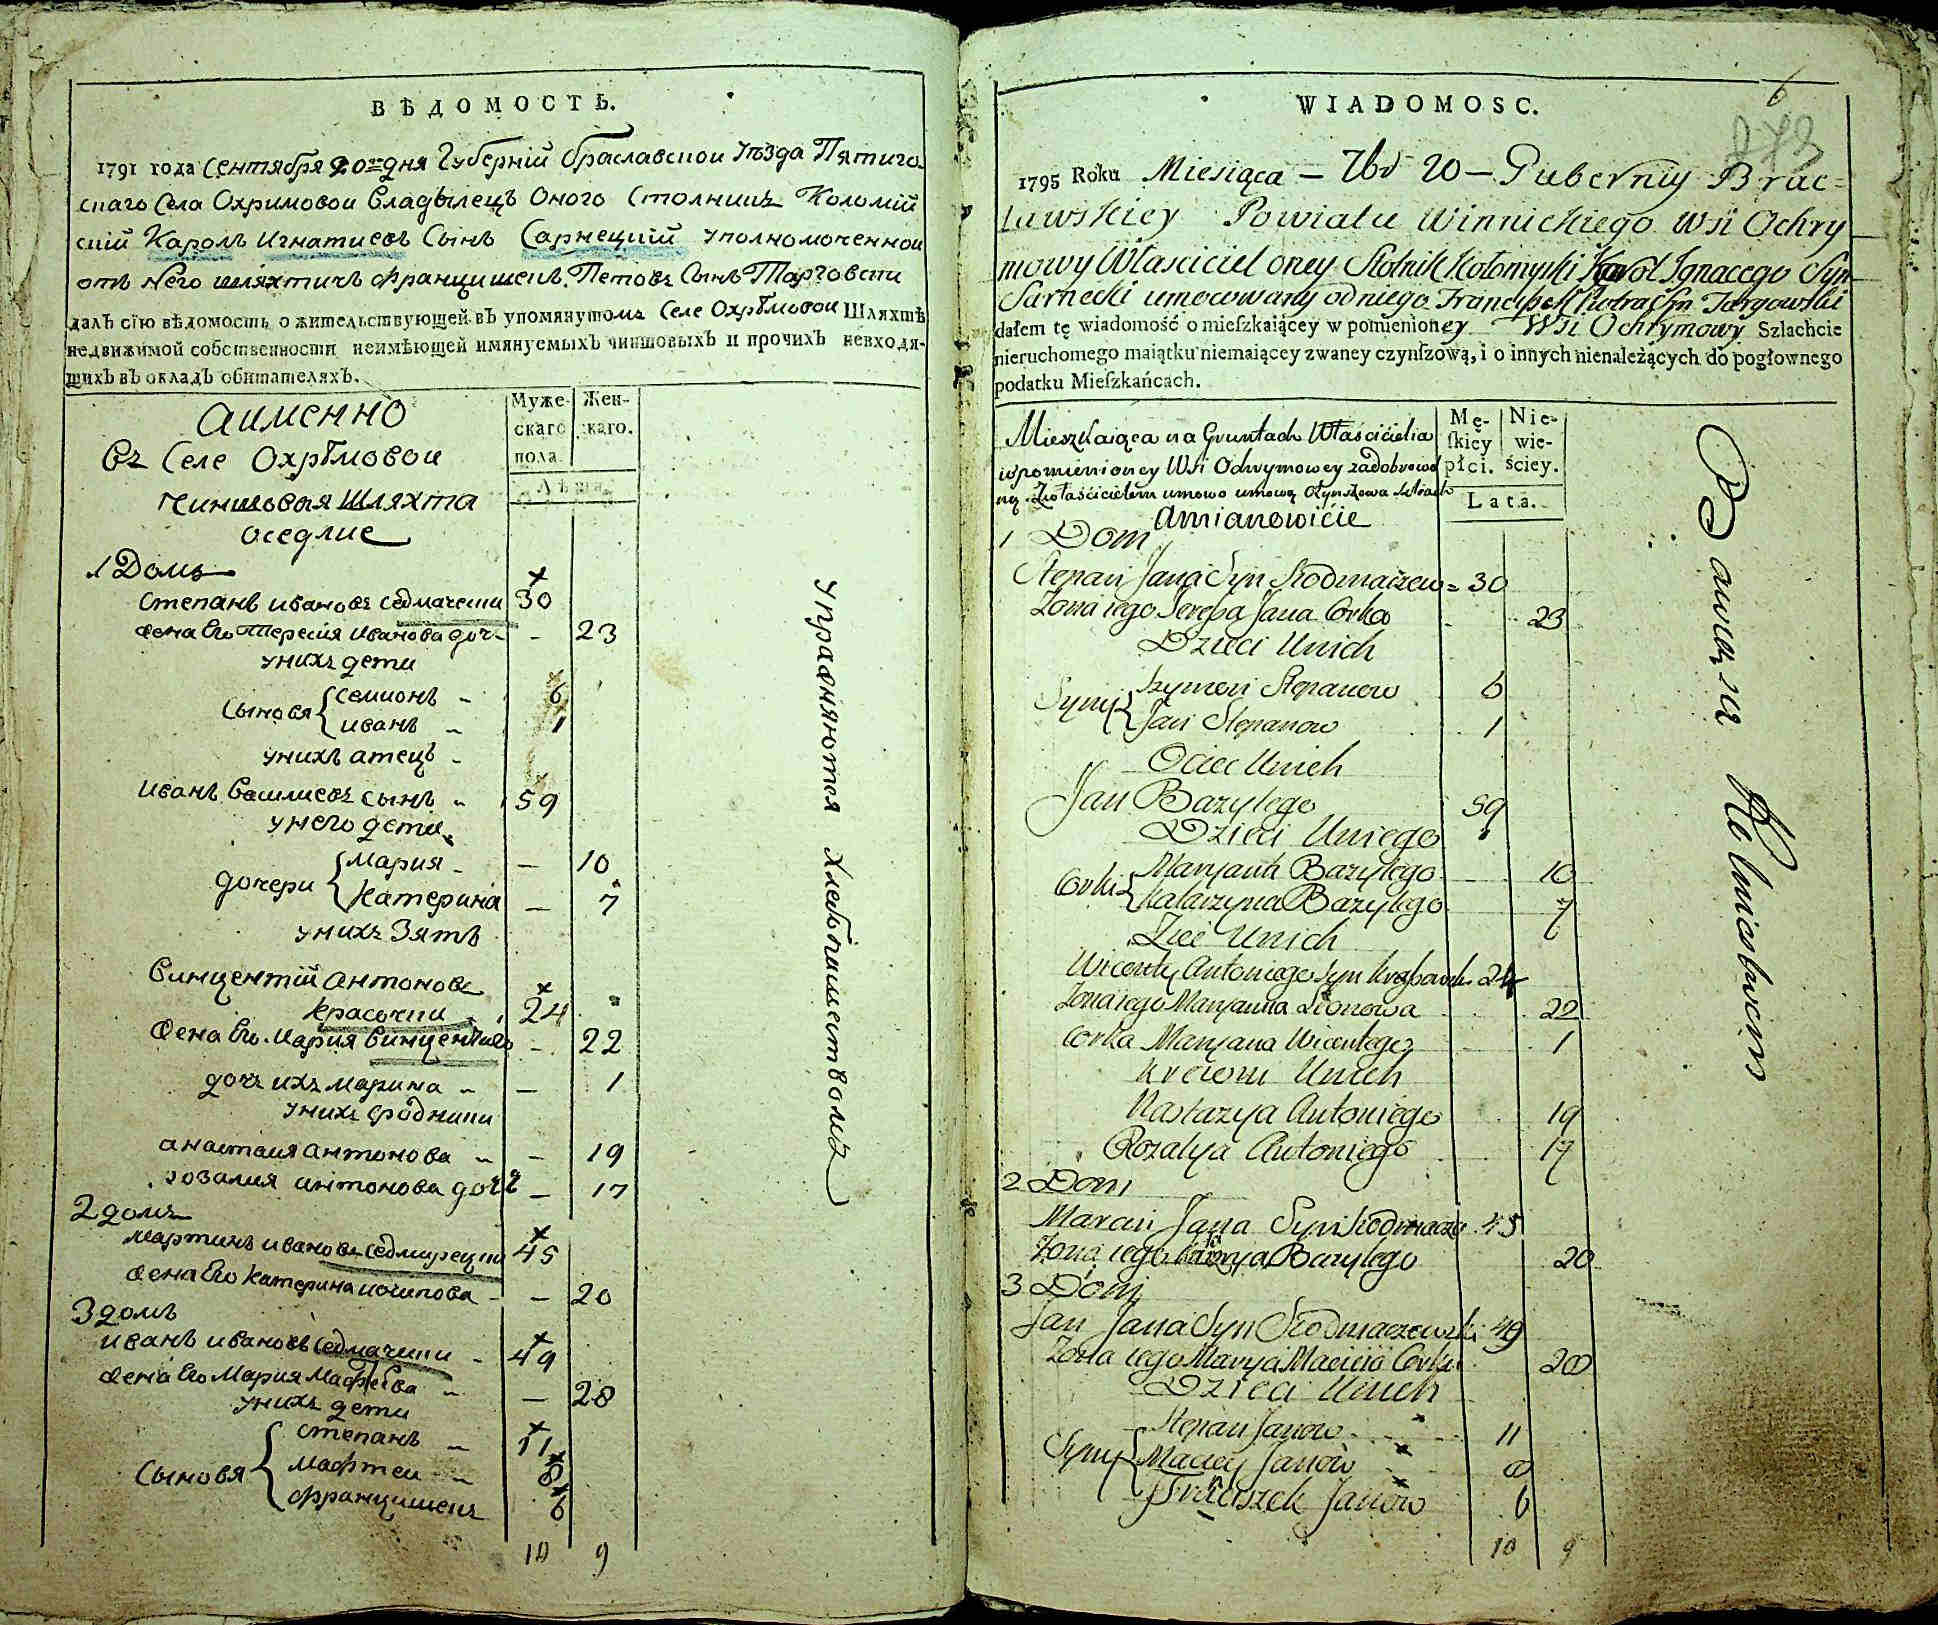 ВѢДОМОСТЬ.
1791 года Сентября 20 дня Губерніи Браславскои Уѣзда Пятиго-
скаго Села Охримовои Владѣлецъ Оного Столникъ Коломій
скій Каролъ Игнатиевъ Сынъ Сарнецкій уполномоченнои
отъ Него шляхтичъ Францишекъ Петровъ Сынъ Тарговски
далъ сію вѣдомость о жительствующей въ упомянутомъ Селе Охрѣмовои Шляхтѣ
недвижимой собственности неимѣющей имянуемыхъ чиншовыхъ и прочихъ невходя-
щихъ въ окладъ обитателяхъ.
Муже-скаго пола. Жен-скаго.
Лѣта.
аименно
въ Селе Охрѣмовои
Чиншовая Шляхта
оседлие
1 Домъ
Степанъ ивановъ Седмачепи 30
жена Его Тересия Иванова доч - 23
унихъ дети
Сыновя { Семионъ 6
иванъ 1
унихъ атецъ
Иванъ Василиевъ сынъ 59
унего дети
дочери { Мария - 10
Катерина - 7
унихъ Зять
Винцентій Антоновъ
Красочпи 24
жена Его Мария - 22
дочъ ихъ Марина - 1
унихъ сродники
анастасия антонова - 19
розалия антонова дочъ - 17
2 домъ
Мартинъ ивановъ 45
жена Его Катерина - 20
3 домъ
иванъ ивановъ Седмачепи 49
жена Его Мария - 28
унихъ дети
Сыновя { Степанъ 11
Мафтеи 8
Францишекъ 6
10 9
упражняются хлебопашествомъ
6
273
WIADOMOSC.
1795 Roku Miesiąca — 7br 20 — Guberniy Brac=
ławskiey Powiatu Winnickiego Wsi Ochry
mowy Własciciel oney Stolnik Kołomyski Karol Ignacego Syn
Sarnecki umocowany od niego Franciszek Piotra Syn Targowski
dałem tę wiadomość o mieſzkaiącey w pomienioney Wsi Ochrymowy Szlachcie
nieruchomego maiątku niemaiącey zwaney czynſzową, i o innych nienależących do pogłownego
podatku Mieſzkańcach.
Mę-ſkiey płci. Nie-wie-ściey.
Lata.
Mieszkaiąca na Gruntach Właściciela
wpomienioney Wsi Ochrymowey zadobrowol
ną
Amianowićie
1 Dom
Stepan Jana Syn 30
Zona iego Teresa Jana Corka 23
Dzieci Unich
Syny { Szymon Stepanow 6
Jan Stepanow 1
Ociec Unich
Jan Bazylego 59
Dzieci Uniego
Corki { Maryanna Bazylego 10
Katarzyna Bazylego 7
Ziec Unich
Wicenty Antoniego Syn 24
Zona iego Maryanna 22
Corka Maryana Wicentego 1
Krewni Unich
Nastazya Antoniego 19
Rozalya Antoniego 17
2 Dom
Marcin Jana Syn 45
Zona iego Bazylego 20
3 Dom
Jan Jana Syn Siodmaczewski 49
Zona iego Marya Macieia Corka 28
Dzieci Unich
Syny { Stepan Janow 11
Maciey Janow 8
Franciszek Janow 6
10 9
Bawią się Rolnictwem